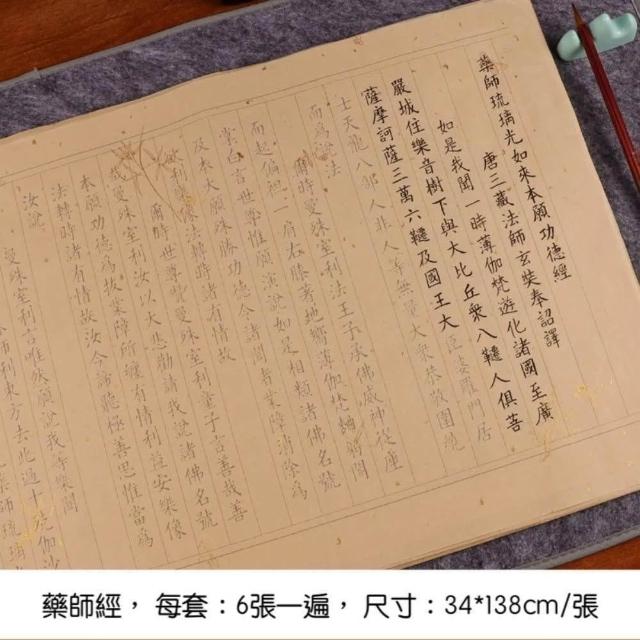 藥師琉璃光如來本願功德經
唐三藏法師玄奘奉詔譯
如是我聞一時薄伽梵遊化諸國至廣
嚴城住樂音樹下與大比丘眾八韆人俱菩
薩摩訶薩三萬六韆及國王大臣婆羅門居
士天龍八部人非人等無量大眾恭敬圍繞
而為說法
爾時曼殊室利法王子承佛威神從座
而起偏袒一肩右膝著地嚮薄伽梵麯躬閤
掌白言世尊惟願演說如是相類諸佛名號
及本大願殊勝功德令諸聞者業障消除為
欲利樂像法轉時諸有情故
爾時世尊讚曼殊室利童子言善哉善
哉曼殊室利汝以大悲勸請我說諸佛名號
本願功德為拔業障所纏有情利益安樂像
法轉時諸有情故汝今諦聽極善思惟當為
汝說
曼殊室利言唯然願說我等樂聞
利東方去此過十殑伽沙
藥師琉璃
藥師經，每套：6張一遍，尺寸：34*138cm/張